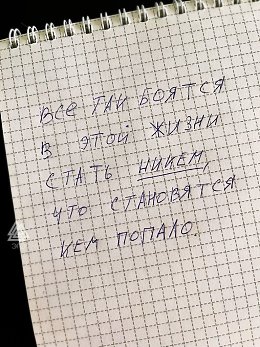 ВСЕ ТАК БОЯТСЯ
В ЭТОЙ ЖИЗНИ
СТАТЬ НИКЕМ,
ЧТО СТАНОВЯТСЯ
КЕМ ПОПАЛО.